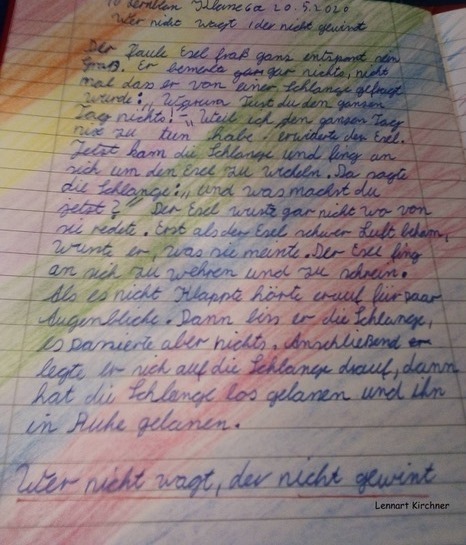 Klasse 6a 20.5.2020
Wer nicht wagt, der nicht gewinnt
Der Faule Esel fraß ganz entspannt sein
Graß. Er bemerkte gar nichts, nicht
mal das er von einer Schlange gefragt
wurde: „Warum tust du den ganzen
Tag nichts!" „Weil ich den ganzen Tag
nix zu tun habe" erwiderte der Esel.
Jetzt kam die Schlange und fing an
sich um den Esel zu wickeln. Da sagte
die Schlange: „und was machst du
jetzt?" Der Esel wuste gar nicht wo von
sie redete. Erst als der Esel schwer Luft bekam,
wuste er, was sie meinte. Der Esel fing
an sich zu wehren und zu schrein.
Als es nicht Klappte hörte er auf für paar
Augenblicke. Dann biss er die Schlange,
es passierte aber nichts. Anschließend
legte er sich auf die Schlange drauf, dann
hat die Schlange los gelassen und ihn
in Ruhe gelassen.
Wer nicht wagt, der nicht gewint
Lennart Kirchner